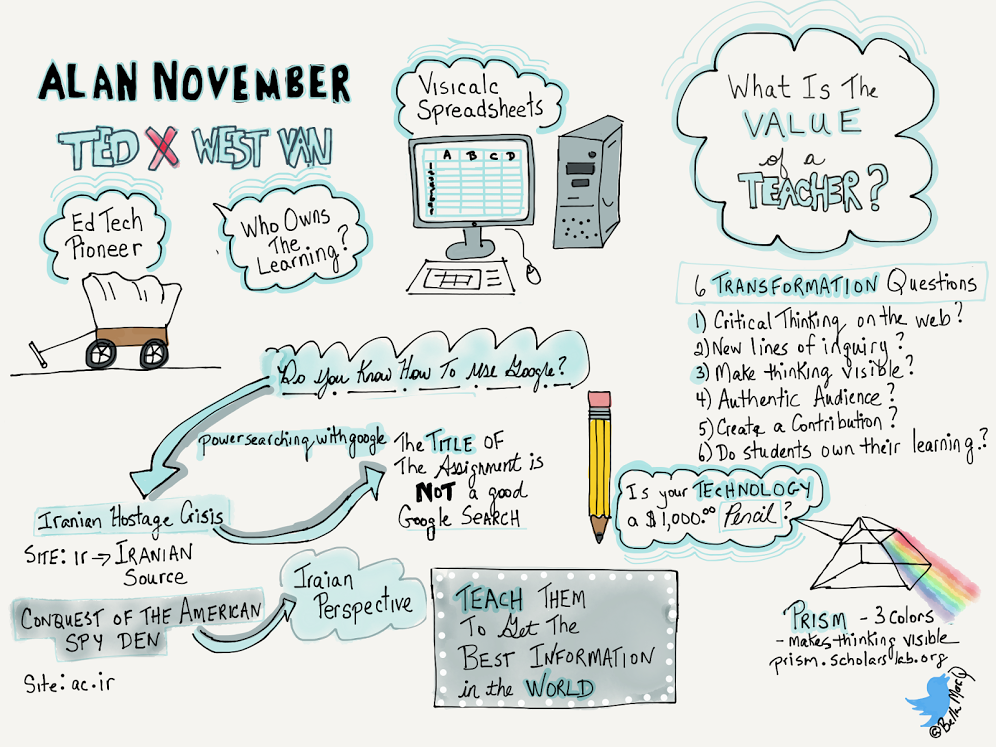 ALAN NOVEMBER
TED X WEST VAN
Ed Tech
Pioneer
Who Owns
The
Learning?
Visicalc
Spreadsheets
A B C D
What Is The
VALUE
of a
TEACHER?
6 TRANSFORMATION Questions
1) Critical Thinking on the web?
2) New lines of inquiry?
3) Make thinking visible?
4) Authentic Audience?
5) Create a Contribution?
6) Do students own their learning?
Do You Know How To Use Google?
powersearching with google
The TITLE OF
The Assignment is
NOT a good
Google SEARCH
Iranian Hostage Crisis
SITE: ir → IRANIAN
Source
CONQUEST OF THE AMERICAN
SPY DEN
Site: ac.ir
Iraian
Perspective
TEACH THEM
To Get The
BEST INFORMATION
in the WORLD
Is your TECHNOLOGY
a $1,000.00 Pencil?
PRISM - 3 colors
- makes thinking visible
prism.scholarslab.org